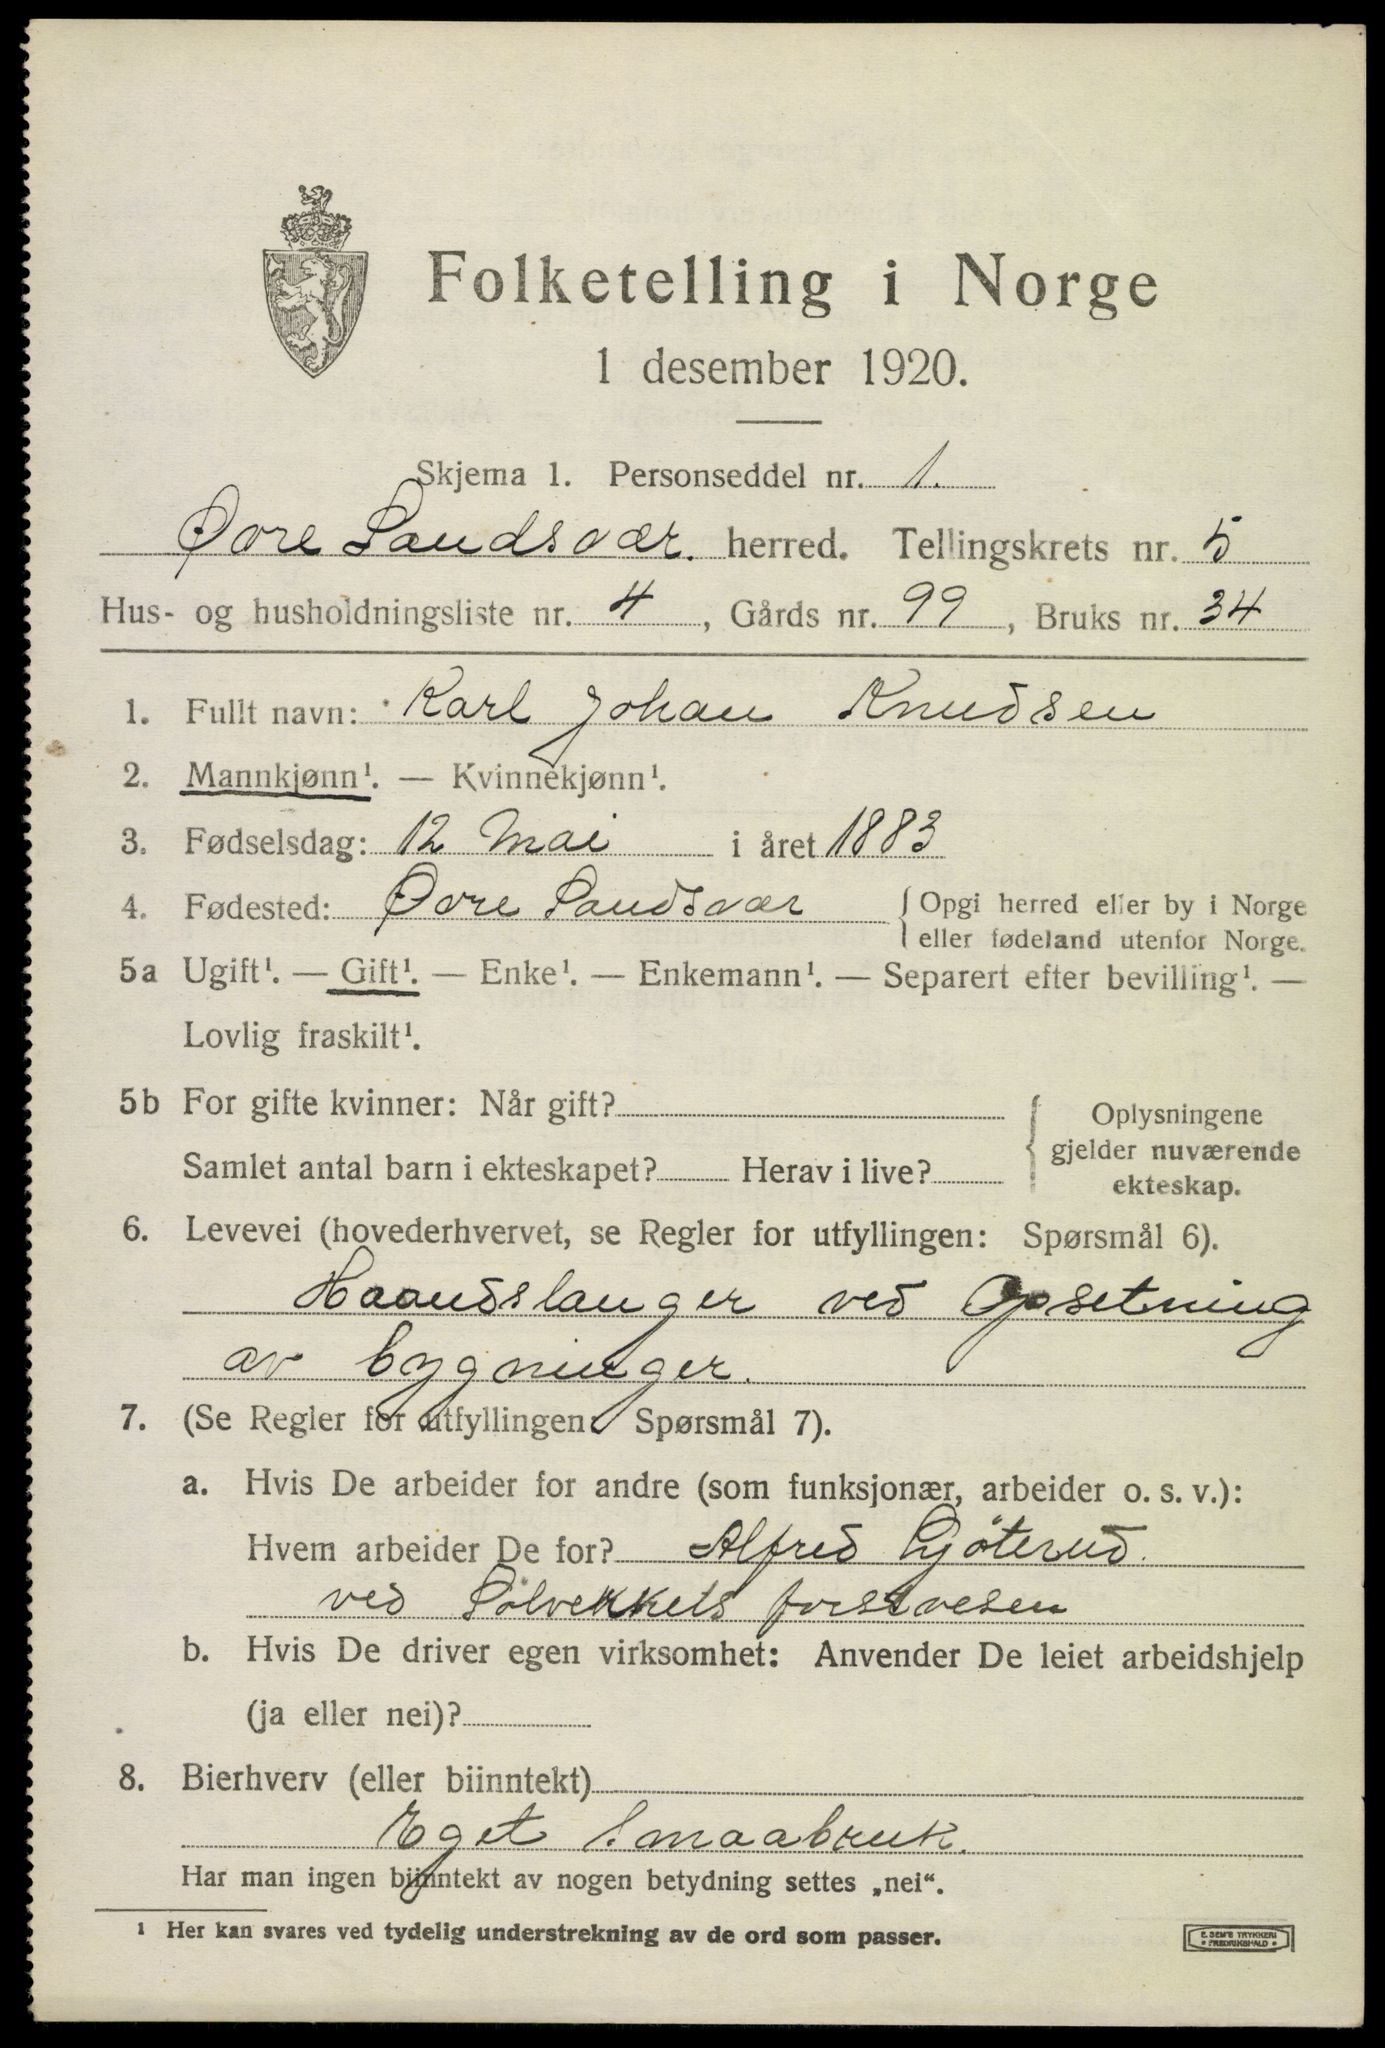 Folketelling i Norge
1 desember 1920.
Skjema 1. Personseddel nr. 1.
Øvre Sandsvær. herred. Tellingskrets nr. 5
Hus- og husholdningsliste nr. 4, Gårds nr. 99, Bruks nr. 34
1. Fullt navn: Karl Johan Knudsen
2. Mannkjønn¹. — Kvinnekjønn¹.
3. Fødselsdag: 12 Mai i året 1883
4. Fødested: Øvre Sandsvær { Opgi herred eller by i Norge
eller fødeland utenfor Norge.
5a Ugift¹. — Gift¹. — Enke¹. — Enkemann¹. — Separert efter bevilling¹. —
Lovlig fraskilt¹.
5b For gifte kvinner: Når gift?
Samlet antal barn i ekteskapet? Herav i live?
{ Oplysningene
gjelder nuværende
ekteskap.
6. Levevei (hovederhvervet, se Regler for utfyllingen: Spørsmål 6).
Haandslanger ved Opsetning
av bygninger.
7. (Se Regler for utfyllingen: Spørsmål 7).
a. Hvis De arbeider for andre (som funksjonær, arbeider o. s. v.):
Hvem arbeider De for? Alfred Gjöterud.
ved Sölverkets forstvesen
b. Hvis De driver egen virksomhet: Anvender De leiet arbeidshjelp
(ja eller nei)?
8. Bierhverv (eller biinntekt)
Eget Smaabruk.
Har man ingen biinntekt av nogen betydning settes „nei“.
¹ Her kan svares ved tydelig understrekning av de ord som passer.
E. SEM'S TRYKKERI
FREDRIKSHALD